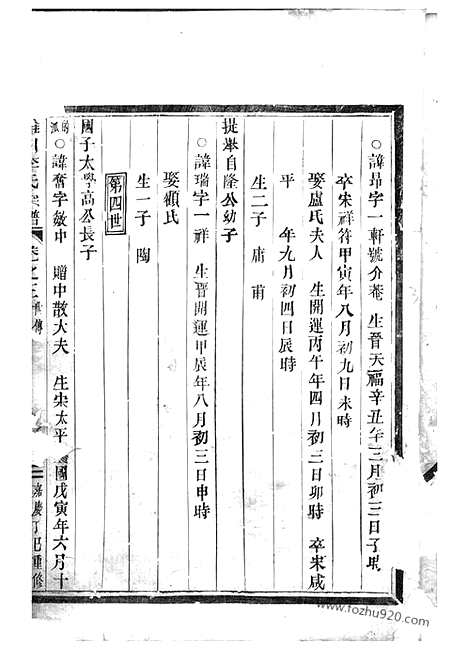 ○諱昻字一軒號介菴 生晉天福辛丑年三月初三日子時
卒宋祥符甲寅年八月初九日未時
娶盧氏夫人 生開運丙午年四月初三日卯時 卒宋咸
平 年九月初四日辰時
生二子 庸 甫
提舉自隆公幼子
○諱瑞字一祥 生晉開運甲辰年八月初三日申時
娶顧氏
生一子 陶
第四世
國子太學高公長子
○諱奮字敛中 贈中散大夫 生宋太平興國戊寅年六月十
李氏宗譜 卷之三
嘉慶丁巳重修
www.fozhu920.com